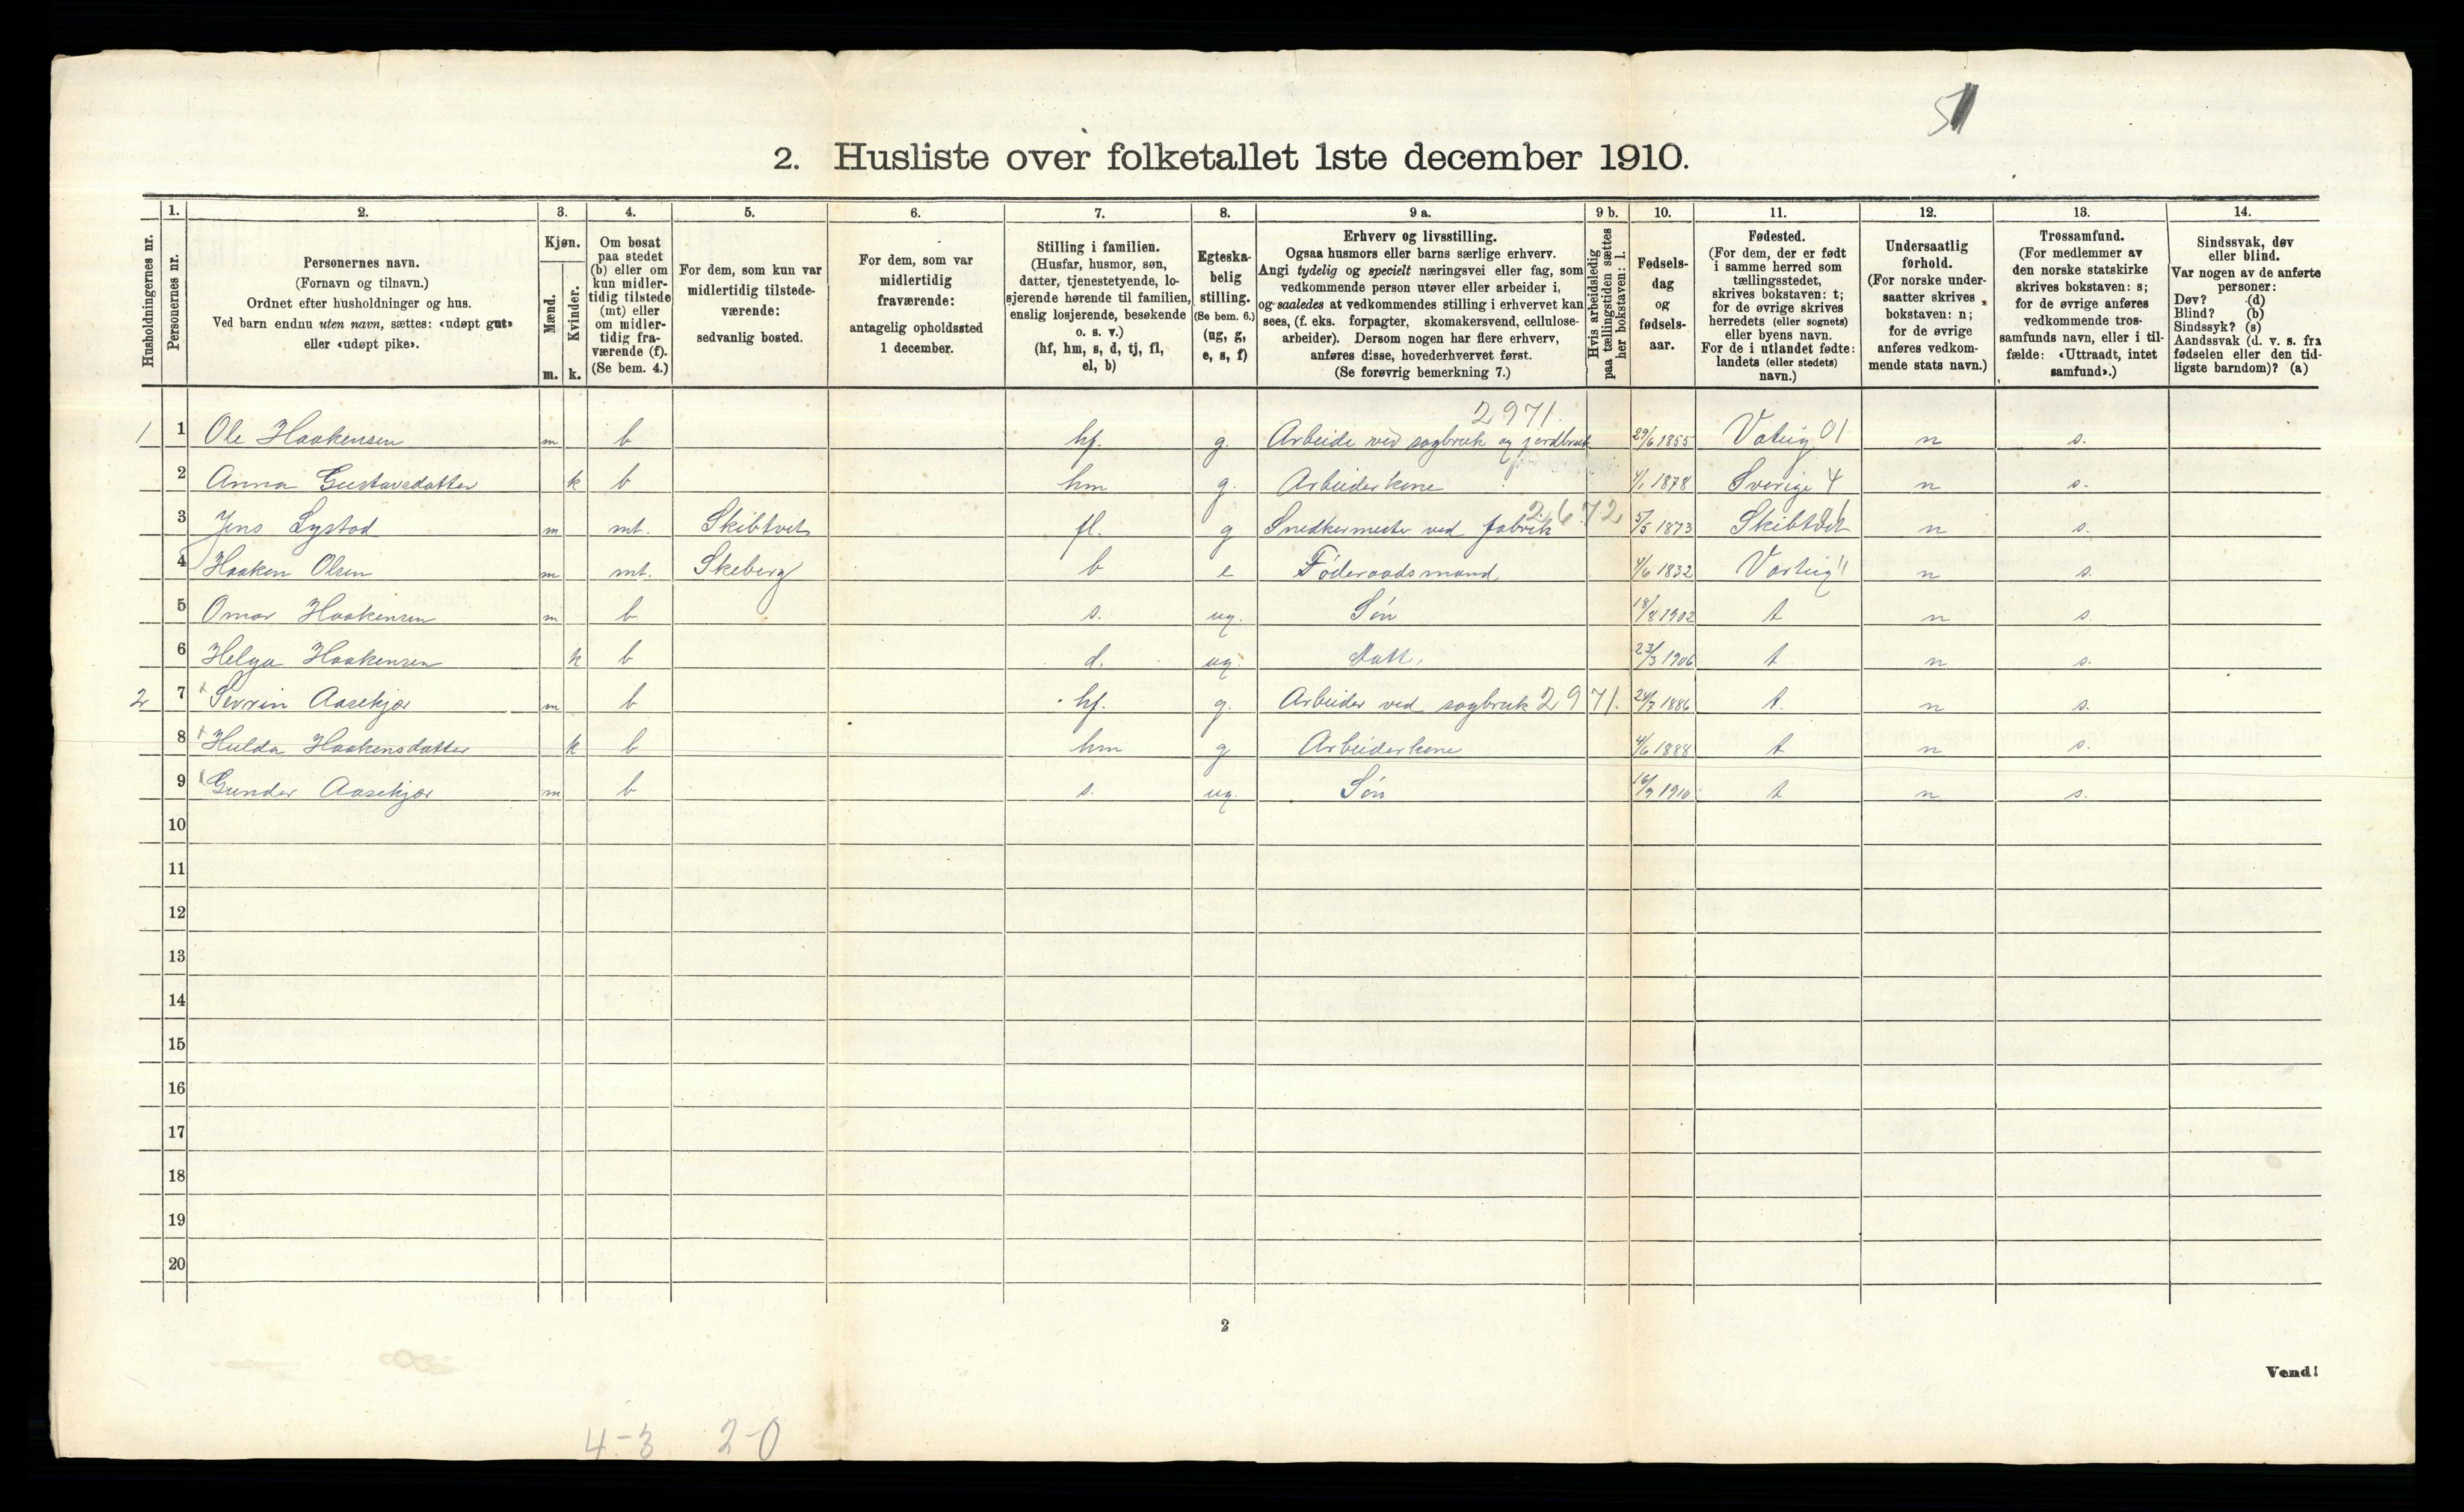 2. Husliste over folketallet 1ste december 1910.
Husholdningernes nr.
1. Personernes nr.
2. Personernes navn.
(Fornavn og tilnavn.)
Ordnet efter husholdninger og hus.
Ved barn endnu uten navn, sættes: «udøpt gut»
eller «udøpt pike».
3. Kjøn.
Mænd. m.
Kvinder. k.
4. Om bosat
paa stedet
(b) eller om
kun midler-
tidig tilstede
(mt) eller
om midler-
tidig fra-
værende (f).
(Se bem. 4.)
5. For dem, som kun var
midlertidig tilstede-
værende:
sedvanlig bosted.
6. For dem, som var
midlertidig
fraværende:
antagelig opholdssted
1 december.
7. Stilling i familien.
(Husfar, husmor, søn,
datter, tjenestetyende, lo-
sjerende hørende til familien,
enslig losjerende, besøkende
o. s. v.)
(hf, hm, s, d, tj, fl,
el, b)
8. Egteska-
belig
stilling.
(Se bem. 6.)
(ug, g,
e, s, f)
9 a. Erhverv og livsstilling.
Ogsaa husmors eller barns særlige erhverv.
Angi tydelig og specielt næringsvei eller fag, som
vedkommende person utøver eller arbeider i,
og saaledes at vedkommendes stilling i erhvervet kan
sees, (f. eks. forpagter, skomakersvend, cellulose-
arbeider). Dersom nogen har flere erhverv,
anføres disse, hovederhvervet først.
(Se forøvrig bemerkning 7.)
9 b. Hvis arbeidsledig
paa tællingstiden sættes
her bokstaven: l.
10. Fødsels-
dag
og
fødsels-
aar.
11. Fødested.
(For dem, der er født
i samme herred som
tællingsstedet,
skrives bokstaven: t;
for de øvrige skrives
herredets (eller sognets)
eller byens navn.
For de i utlandet fødte:
landets (eller stedets)
navn.)
12. Undersaatlig
forhold.
(For norske under-
saatter skrives
bokstaven: n;
for de øvrige
anføres vedkom-
mende stats navn.)
13. Trossamfund.
(For medlemmer av
den norske statskirke
skrives bokstaven: s;
for de øvrige anføres
vedkommende tros-
samfunds navn, eller i til-
fælde: «Uttraadt, intet
samfund».)
14. Sindssvak, døv
eller blind.
Var nogen av de anførte
personer:
Døv? (d)
Blind? (b)
Sindssyk? (s)
Aandssvak (d. v. s. fra
fødselen eller den tid-
ligste barndom)? (a)
2971.
1 1 Ole Haakensen m b hf. g. Arbeide ved sagbruk og jordbruk 29/6 1855 Vateig 01 n s.
2 Anna Gustavsdatter k b hm g. Arbeiderkone 4/1 1878 Sverige 4 n s.
3 Jens Lystad m mt. Skibtvet fl. g Snedkermester ved fabrik 2672 5/5 1873 Skibtvet n s.
4 Haaken Olsen m mt. Skeberg b e Føderaadsmand 4/6 1832 Varteig n s.
5 Omar Haakensen m b s. ug. Søn 18/8 1902 t n s.
6 Helga Haakensen k b d. ug. Datt. 23/3 1906 t n s.
2 7 Sevrin Aasekjær m b hf. g. Arbeider ved sagbruk 2971. 24/7 1886 t. n s.
8 Hulda Haakensdatter k b hm g Arbeiderkone 4/6 1888 t n s.
9 Gunder Aasekjær m b s. ug. Søn 16/7 1910 t n s.
10
11
12
13
14
15
16
17
18
19
20
2
Vend!
4-3 2-0